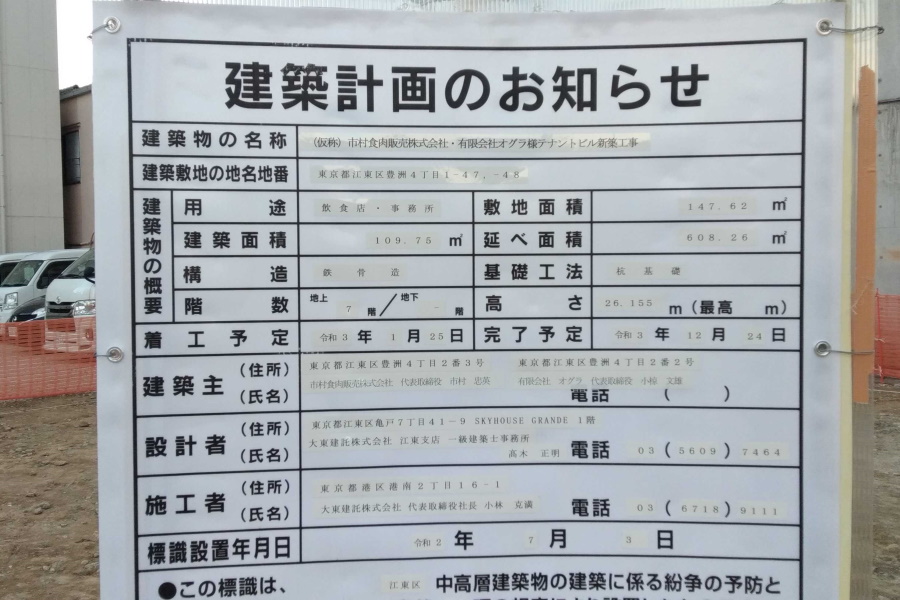 建築計画のお知らせ
建築物の名称 (仮称)市村食肉販売株式会社・有限会社オグラ様テナントビル新築工事
建築敷地の地名地番 東京都江東区豊洲4丁目1-47, -48
建築物の概要
用途 飲食店・事務所 敷地面積 147.62 ㎡
建築面積 109.75 ㎡ 延べ面積 608.26 ㎡
構造 鉄骨造 基礎工法 杭基礎
階数 地上 7 階/地下 - 階 高さ 26.155 m(最高 m)
着工予定 令和3年1月25日 完了予定 令和3年12月24日
建築主 (住所) 東京都江東区豊洲4丁目2番3号 東京都江東区豊洲4丁目2番2号
(氏名) 市村食肉販売株式会社 代表取締役 市村 忠英 有限会社 オグラ 代表取締役 小椋 文雄
電話 ( )
設計者 (住所) 東京都江東区亀戸7丁目41-9 SKYHOUSE GRANDE 1階
(氏名) 大東建託株式会社 江東支店 一級建築士事務所
高木 正明 電話 03(5609)7464
施工者 (住所) 東京都港区港南2丁目16-1
(氏名) 大東建託株式会社 代表取締役社長 小林 克満 電話 03(6718)9111
標識設置年月日 令和2年7月3日
●この標識は、 江東区 中高層建築物の建築に係る紛争の予防と